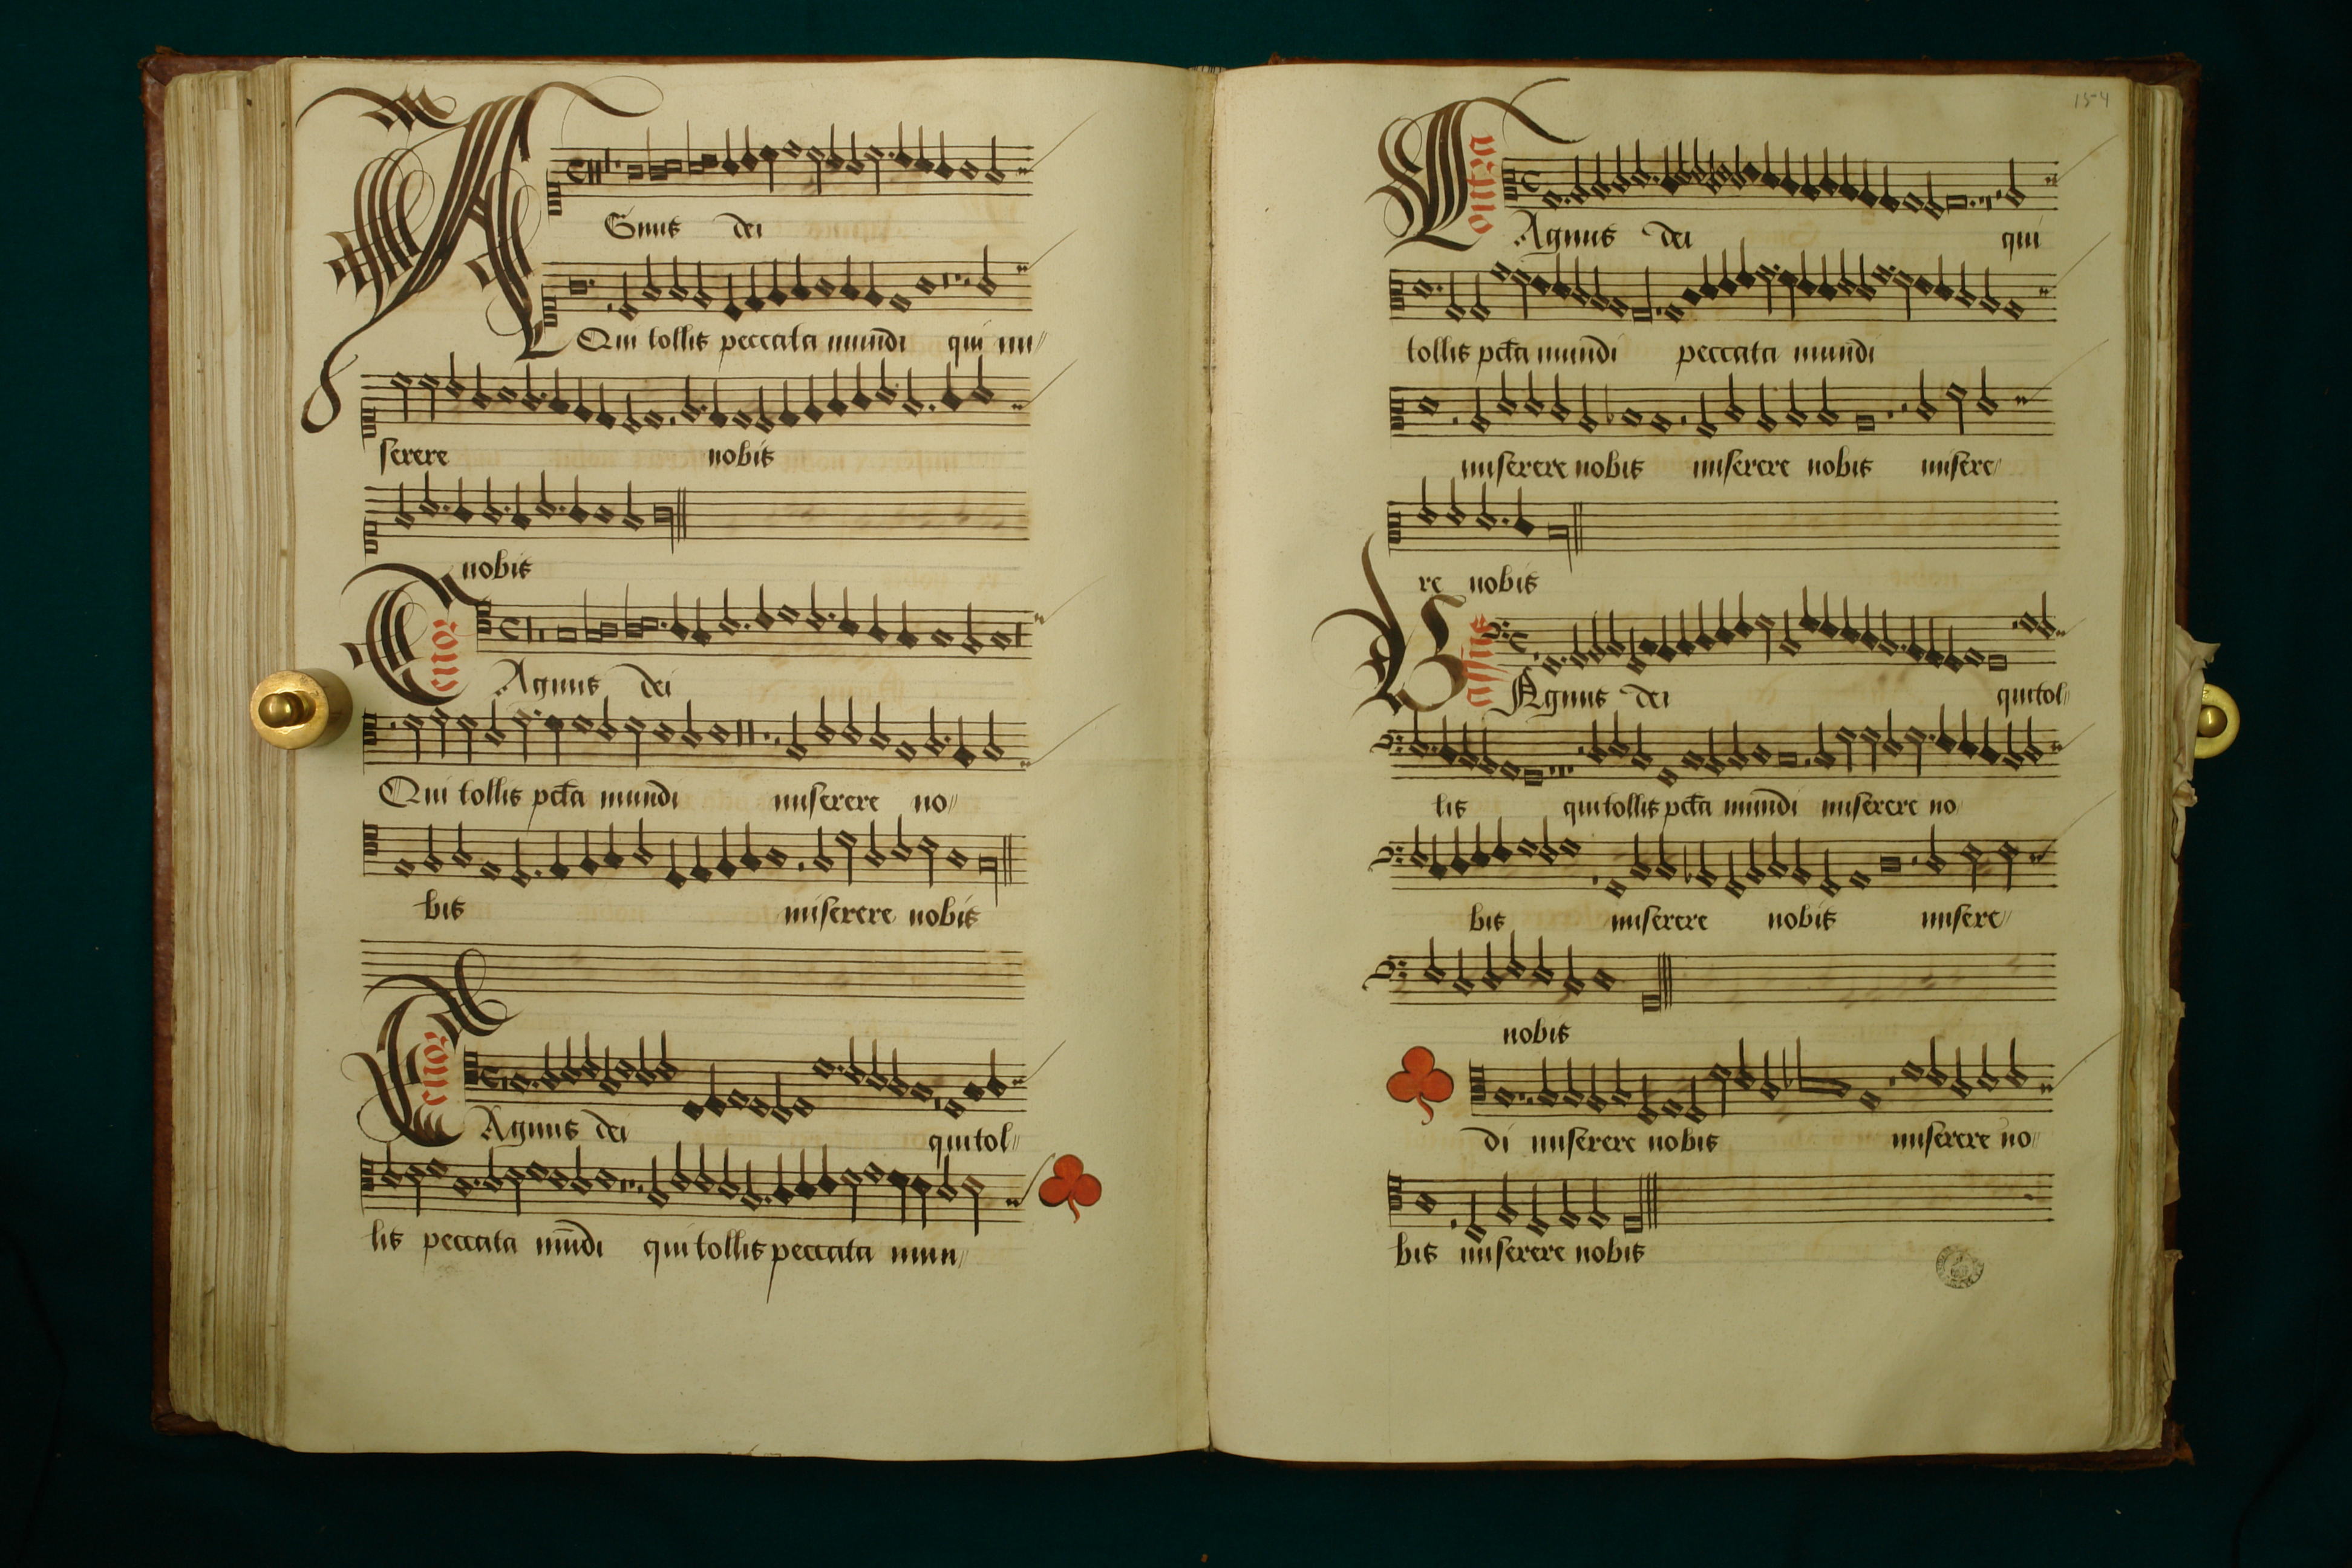 AGnus dei
Qui tollis peccata mundi qui mi//
serere nobis
nobis
Tenor
Agnus dei
Qui tollis pcta mundi miserere no//
bis miserere nobis
Tenor
Agnus dei qui tol//
lis peccata mundi qui tollis peccata mun//
154
Agnus dei qui
tollis pcta mundi peccata mundi
miserere nobis miserere nobis misere//
re nobis
Bassus
Agnus dei qui tol//
lis qui tollis pcta mundi miserere no
bis miserere nobis misere//
nobis
di miserere nobis miserere no//
bis miserere nobis